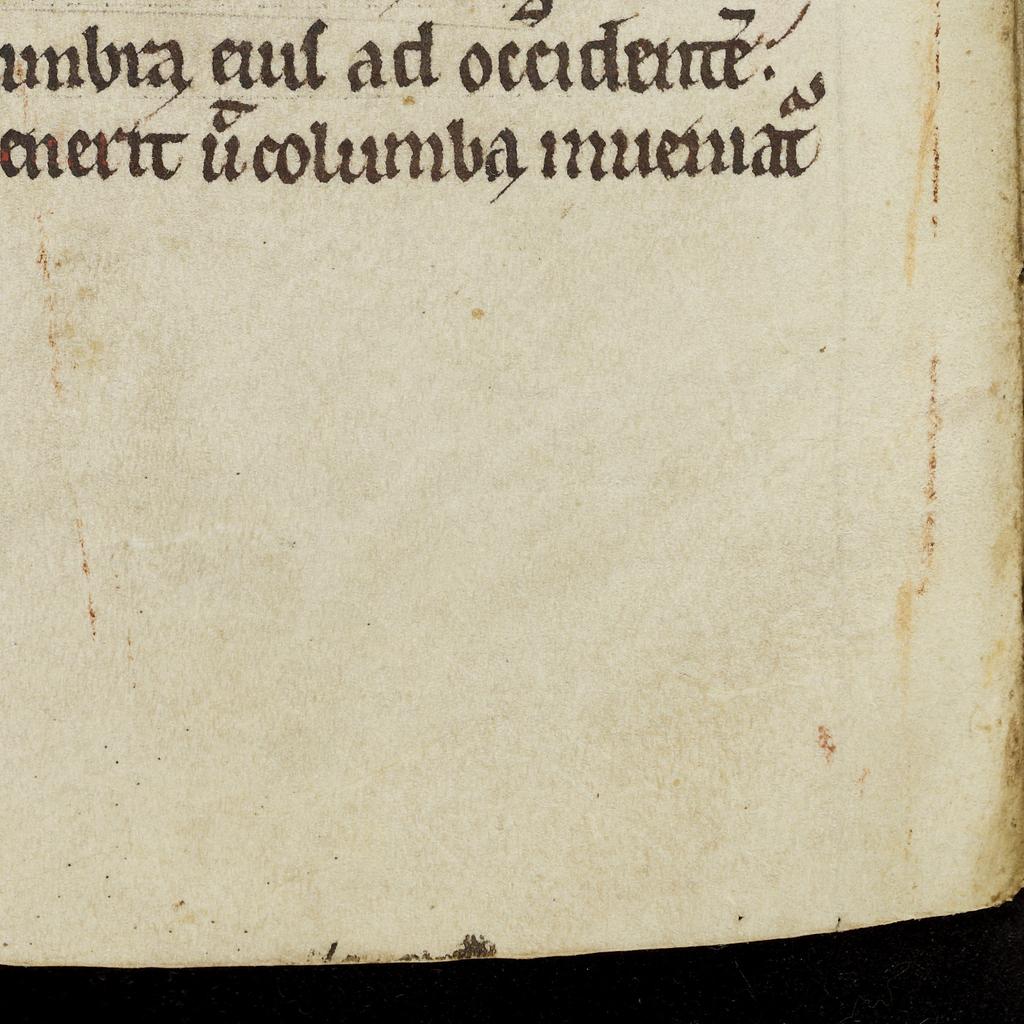 umbra eiuſ ad occidentē.
enerit ū columba inueniat᷑